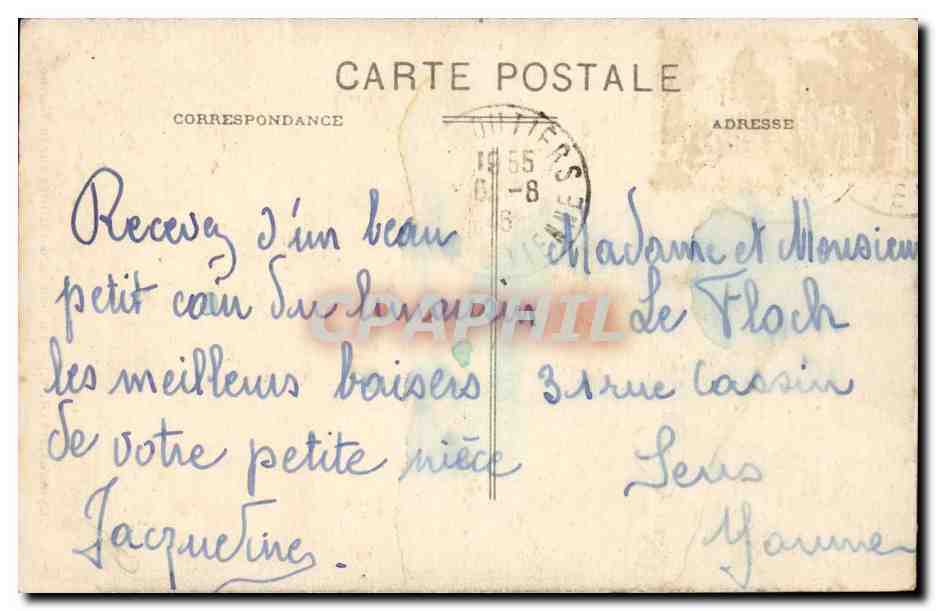 CARTE POSTALE
CORRESPONDANCE
ADRESSE
1955
-8
VIENNE
Recevez d'un beau
petit coin du limousin
les meilleurs baisers
de votre petite nièce
Jacqueline.
Madame et Monsieur
Le Floch
31 rue Cassin
Sens
Yonne
CPAPHIL